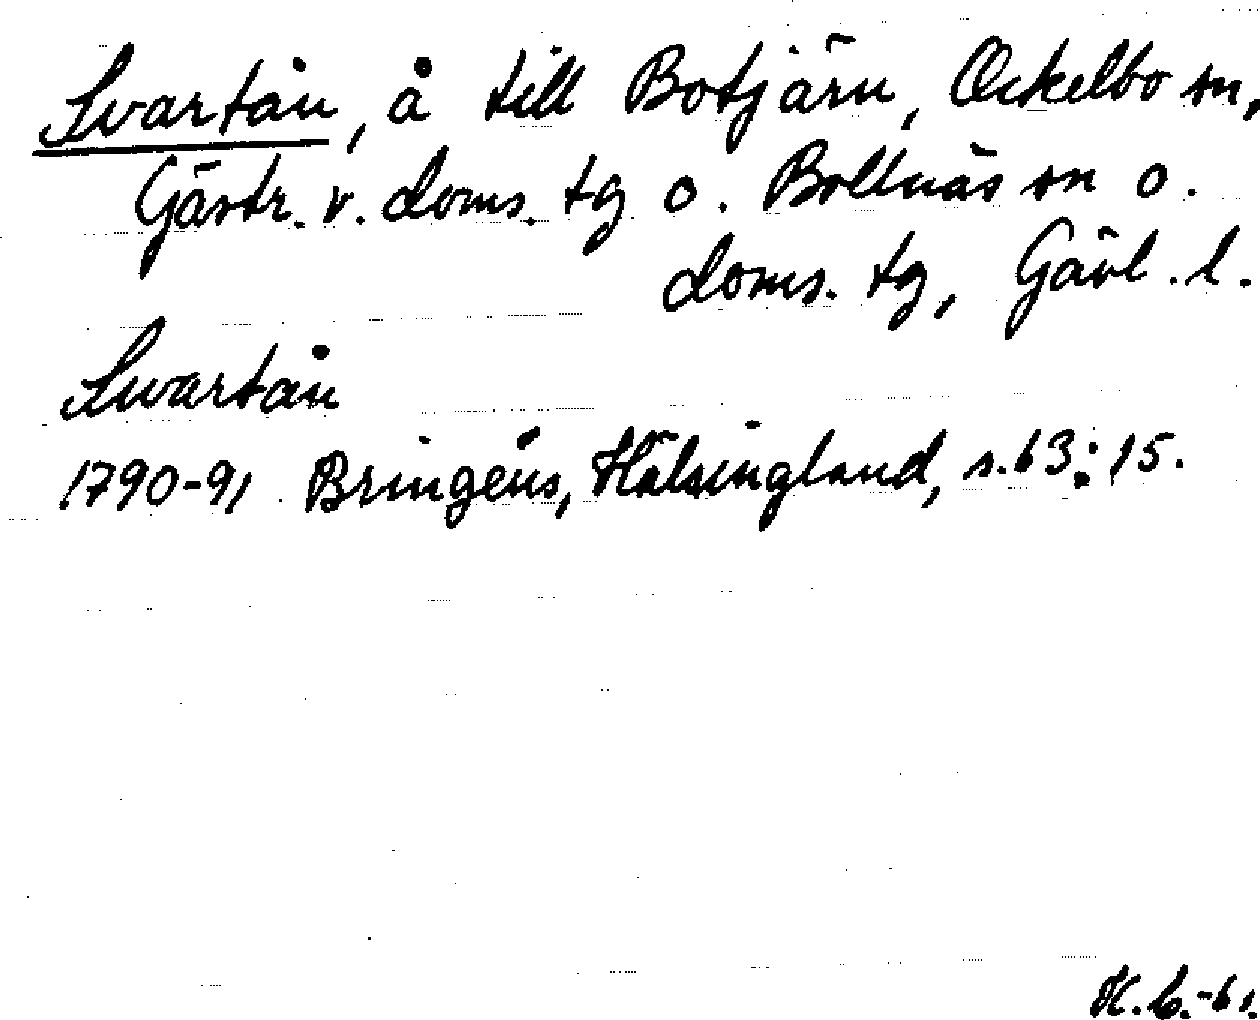 Svartån, å till Botjärn, Ockelbo sn,
Gästr. v. doms. tg o. Bollnäs sn o.
doms. tg, Gävl. l.
Swartån
1790-91 Bringéus, Hälsingland, s. 63: 15.
K. C. -61.